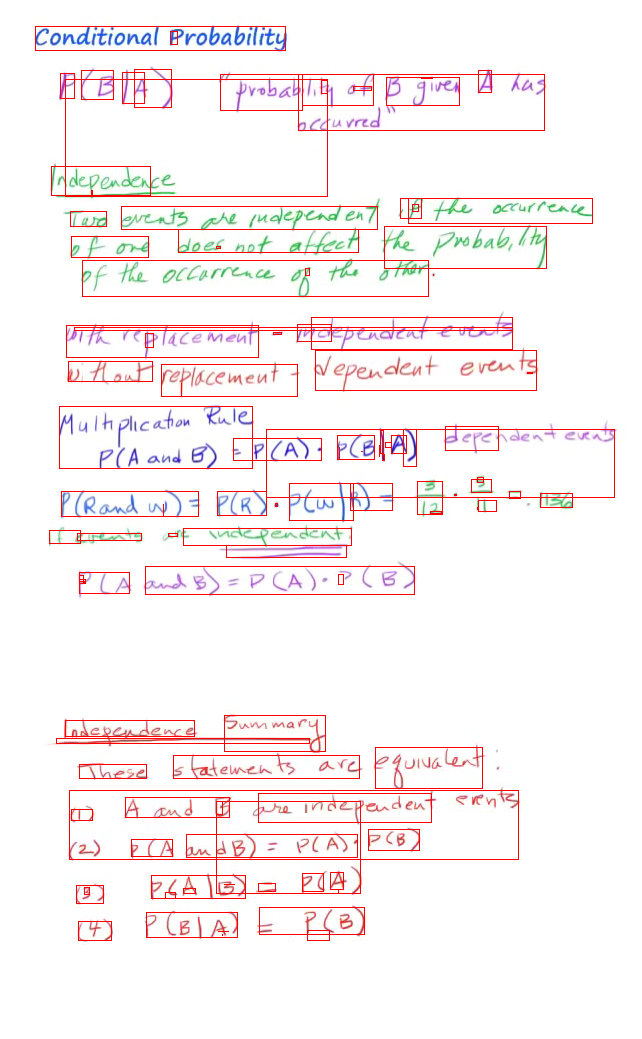 Conditional Probability
P(B|A) "probability of B given A has
occurred"
Independence
Two events are independent if the occurrence
of one does not affect the probability
of the occurrence of the other.
with replacement - independent events
without replacement - dependent events
Multiplication Rule
P(A and B) = P(A) · P(B|A) dependent events
P(R and W) = P(R) · P(W|R) = 3/12 · 5/11 = .136
if events are independent:
P(A and B) = P(A) · P(B)
Independence Summary
These statements are equivalent:
(1) A and B are independent events
(2) P(A and B) = P(A) · P(B)
(3) P(A|B) = P(A)
(4) P(B|A) = P(B)